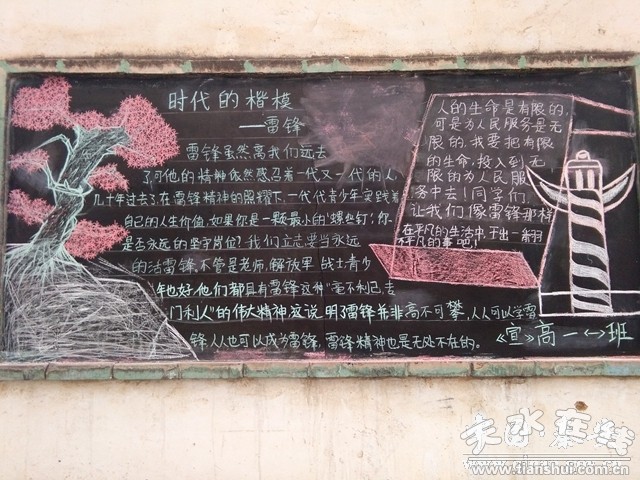 时代的楷模
——雷锋
雷锋虽然离我们远去
了可他的精神依然感召着一代又一代的人,
几十年过去了,在雷锋精神的照耀下,一代代青少年实践着
自己的人生价值,如果你是一颗最小的"螺丝钉",你
是否永远的坚守岗位?我们立志要当永远
的活雷锋,不管是老师,解放军,战士,青少
年也好,他们都具有雷锋这种"毫不利己,专
门利人"的伟大精神,这说明了雷锋并非高不可攀,人人可以学雷
锋,人人也可以成为雷锋,雷锋精神也是无处不在的。
人的生命是有限的,
可是为人民服务是无
限的,我要把有限
的生命,投入到无
限的为人民服
务中去!同学们,
让我们像雷锋那样
在平凡的生活中,干出一番
不平凡的事吧!
《宣》高一<一>班
天水在线
www.tianshui.com.cn